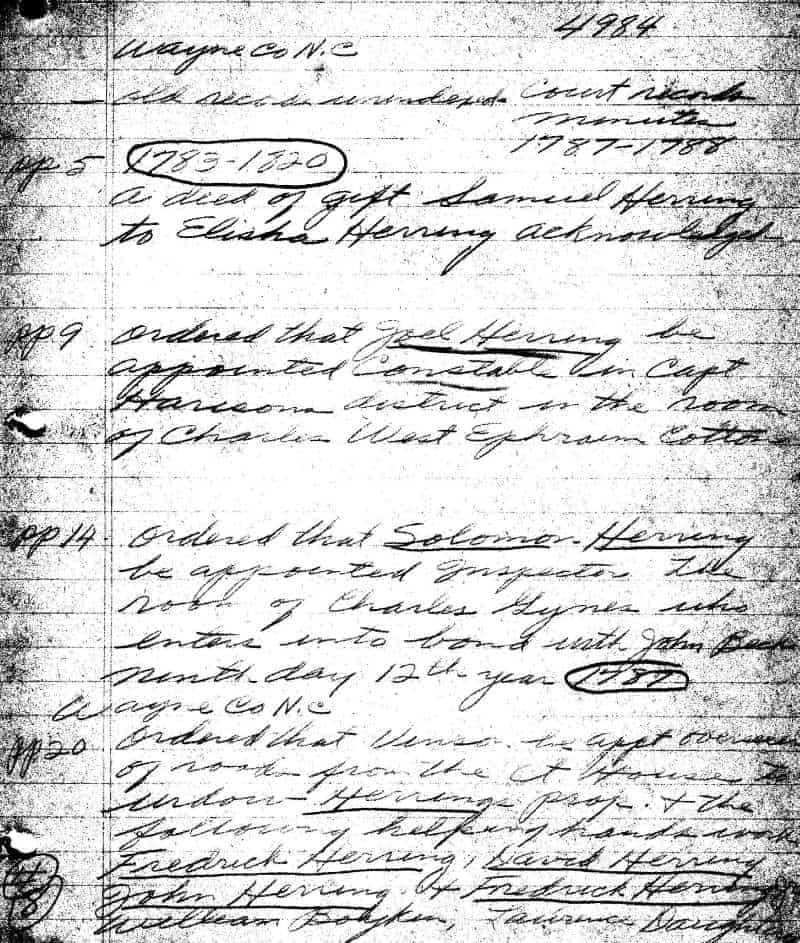 4984
Wayne Co N.C
— old records unindexed. Court records
minutes
1787-1788
pp 5 1783-1820
A deed of gift Samuel Herring
to Elisha Herring acknowledged
pp 9 ordered that Joel Herring be
appointed Constable in Capt
Harisons district in the room
of Charles West Ephraim Cotton
pp 14 Ordered that Solomon Herring
be appointed Inspector The
room of Charles Gynes who
enters into bond with John Beck
ninth day 12th year 1787
Wayne Co N.C
pp 20 Ordered that Vinson be appt overseer
of roads from the Ct House to
widow Herrings prop. + the
following helping hands work
Fredrick Herring, David Herring
John Herring + Fredrick Herring
William Boyken, Lawrence